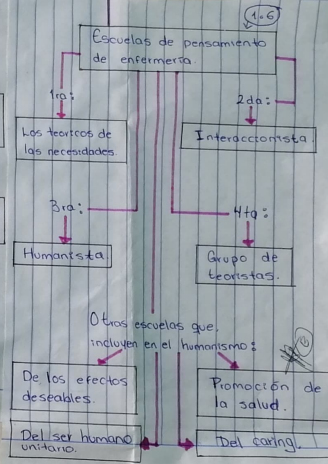 1.6
Escuelas de pensamiento
de enfermería.
1ra:
2da:
Los teoricos de
las necesidades.
Interaccionista.
3ra:
4ta:
Humanista.
Grupo de
teoristas.
Otras escuelas que,
incluyen en el humanismo:
De los efectos
deseables.
Promoción de
la salud.
Del ser humano
unitario.
Del caring.